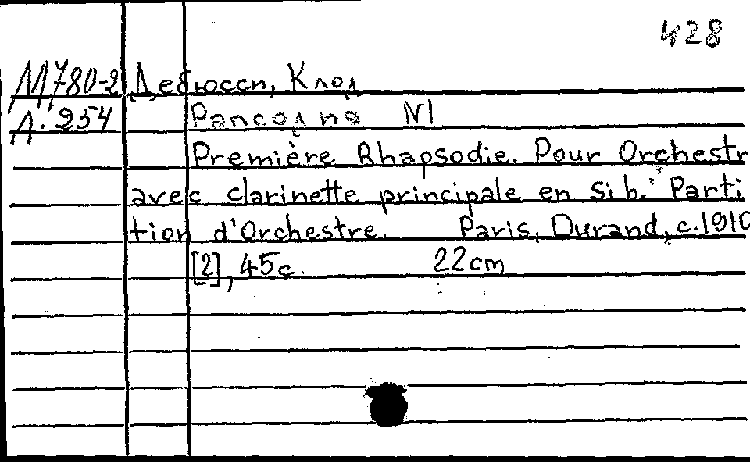 428
М780-2 Дебюсси, Клод
Д. 254 Рапсодия N1
Première Rhapsodie. Pour Orchestr
avec clarinette principale en si b. Parti
tion d'Orchestre. Paris, Durand, c.1910
[2], 45c. 22cm